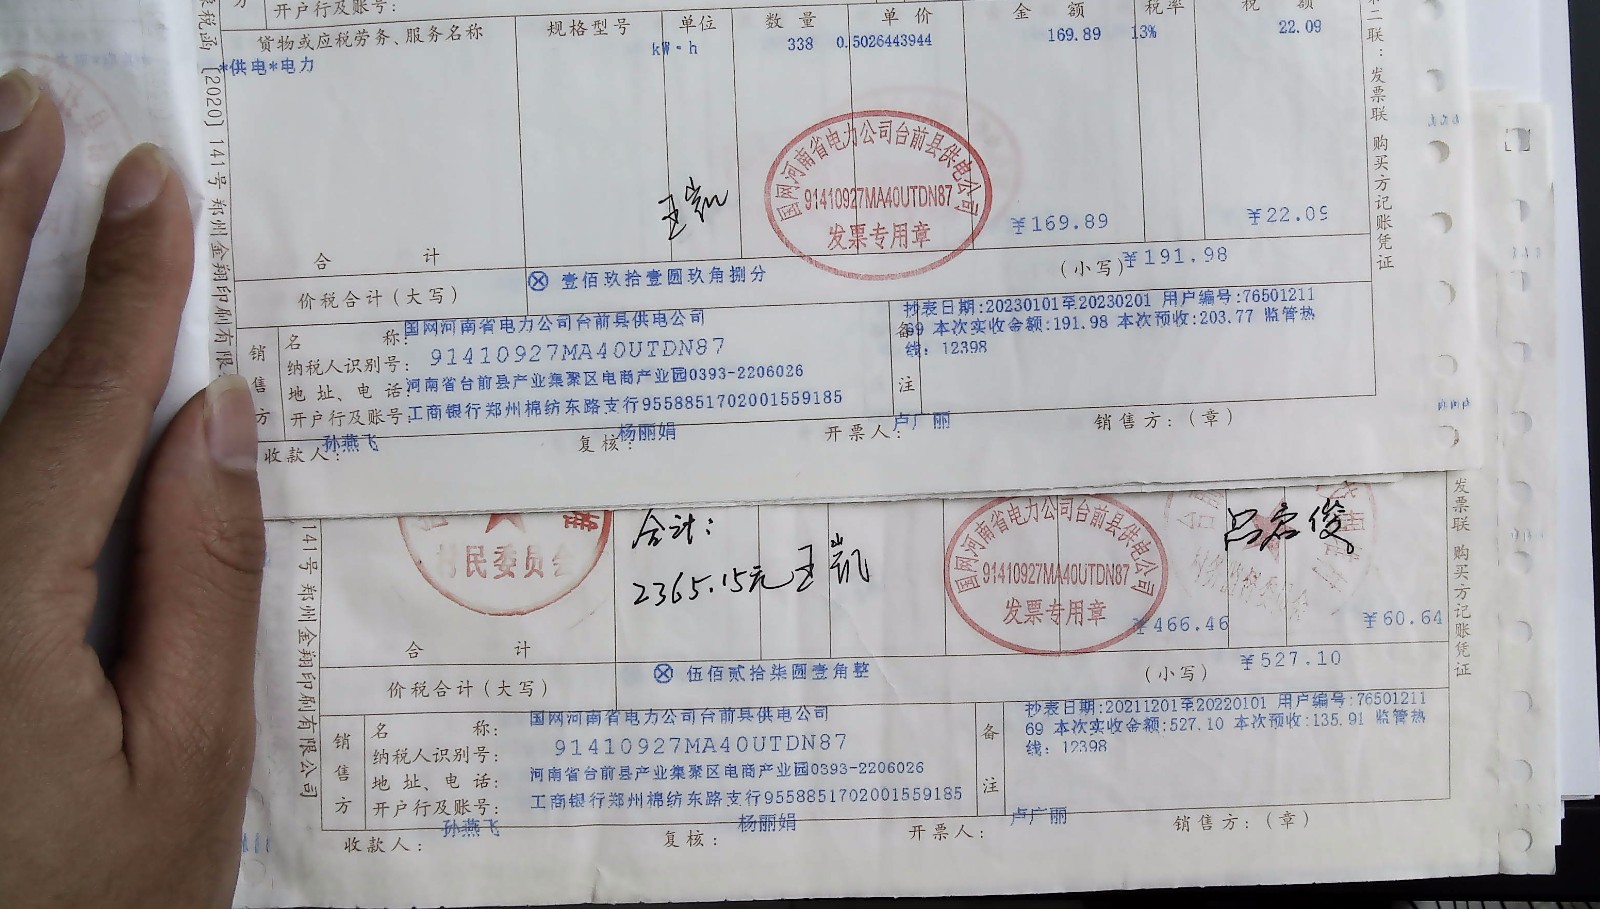 开户行及账号:
货物或应税劳务、服务名称 规格型号 单位 数量 单价 金额 税率 税额
*供电*电力 kW·h 338 0.5026443944 169.89 13% 22.09
国网河南省电力公司台前县供电公司
91410927MA40UTDN87
发票专用章
王凯
合计 ¥169.89 ¥22.09
价税合计(大写) ⊗ 壹佰玖拾壹圆玖角捌分 (小写) ¥191.98
销售方
名称: 国网河南省电力公司台前县供电公司
纳税人识别号: 91410927MA40UTDN87
地址、电话: 河南省台前县产业集聚区电商产业园0393-2206026
开户行及账号: 工商银行郑州棉纺东路支行9558851702001559185
备注
抄表日期:20230101至20230201 用户编号:76501211
69 本次实收金额:191.98 本次预收:203.77 监管热
线: 12398
收款人: 孙燕飞 复核: 杨丽娟 开票人: 卢广丽 销售方:(章)
税函[2020]141号郑州金翔印刷有限
第二联:发票联 购买方记账凭证
村民委员会
合计:
2365.15元 王凯
国网河南省电力公司台前县供电公司
91410927MA40UTDN87
发票专用章
合计 ¥466.46 ¥60.64
价税合计(大写) ⊗ 伍佰贰拾柒圆壹角整 (小写) ¥527.10
销售方
名称: 国网河南省电力公司台前县供电公司
纳税人识别号: 91410927MA40UTDN87
地址、电话: 河南省台前县产业集聚区电商产业园0393-2206026
开户行及账号: 工商银行郑州棉纺东路支行9558851702001559185
备注
抄表日期:20211201至20220101 用户编号:76501211
69 本次实收金额:527.10 本次预收:135.91 监管热
线: 12398
收款人: 孙燕飞 复核: 杨丽娟 开票人: 卢广丽 销售方:(章)
141号郑州金翔印刷有限公司
发票联 购买方记账凭证